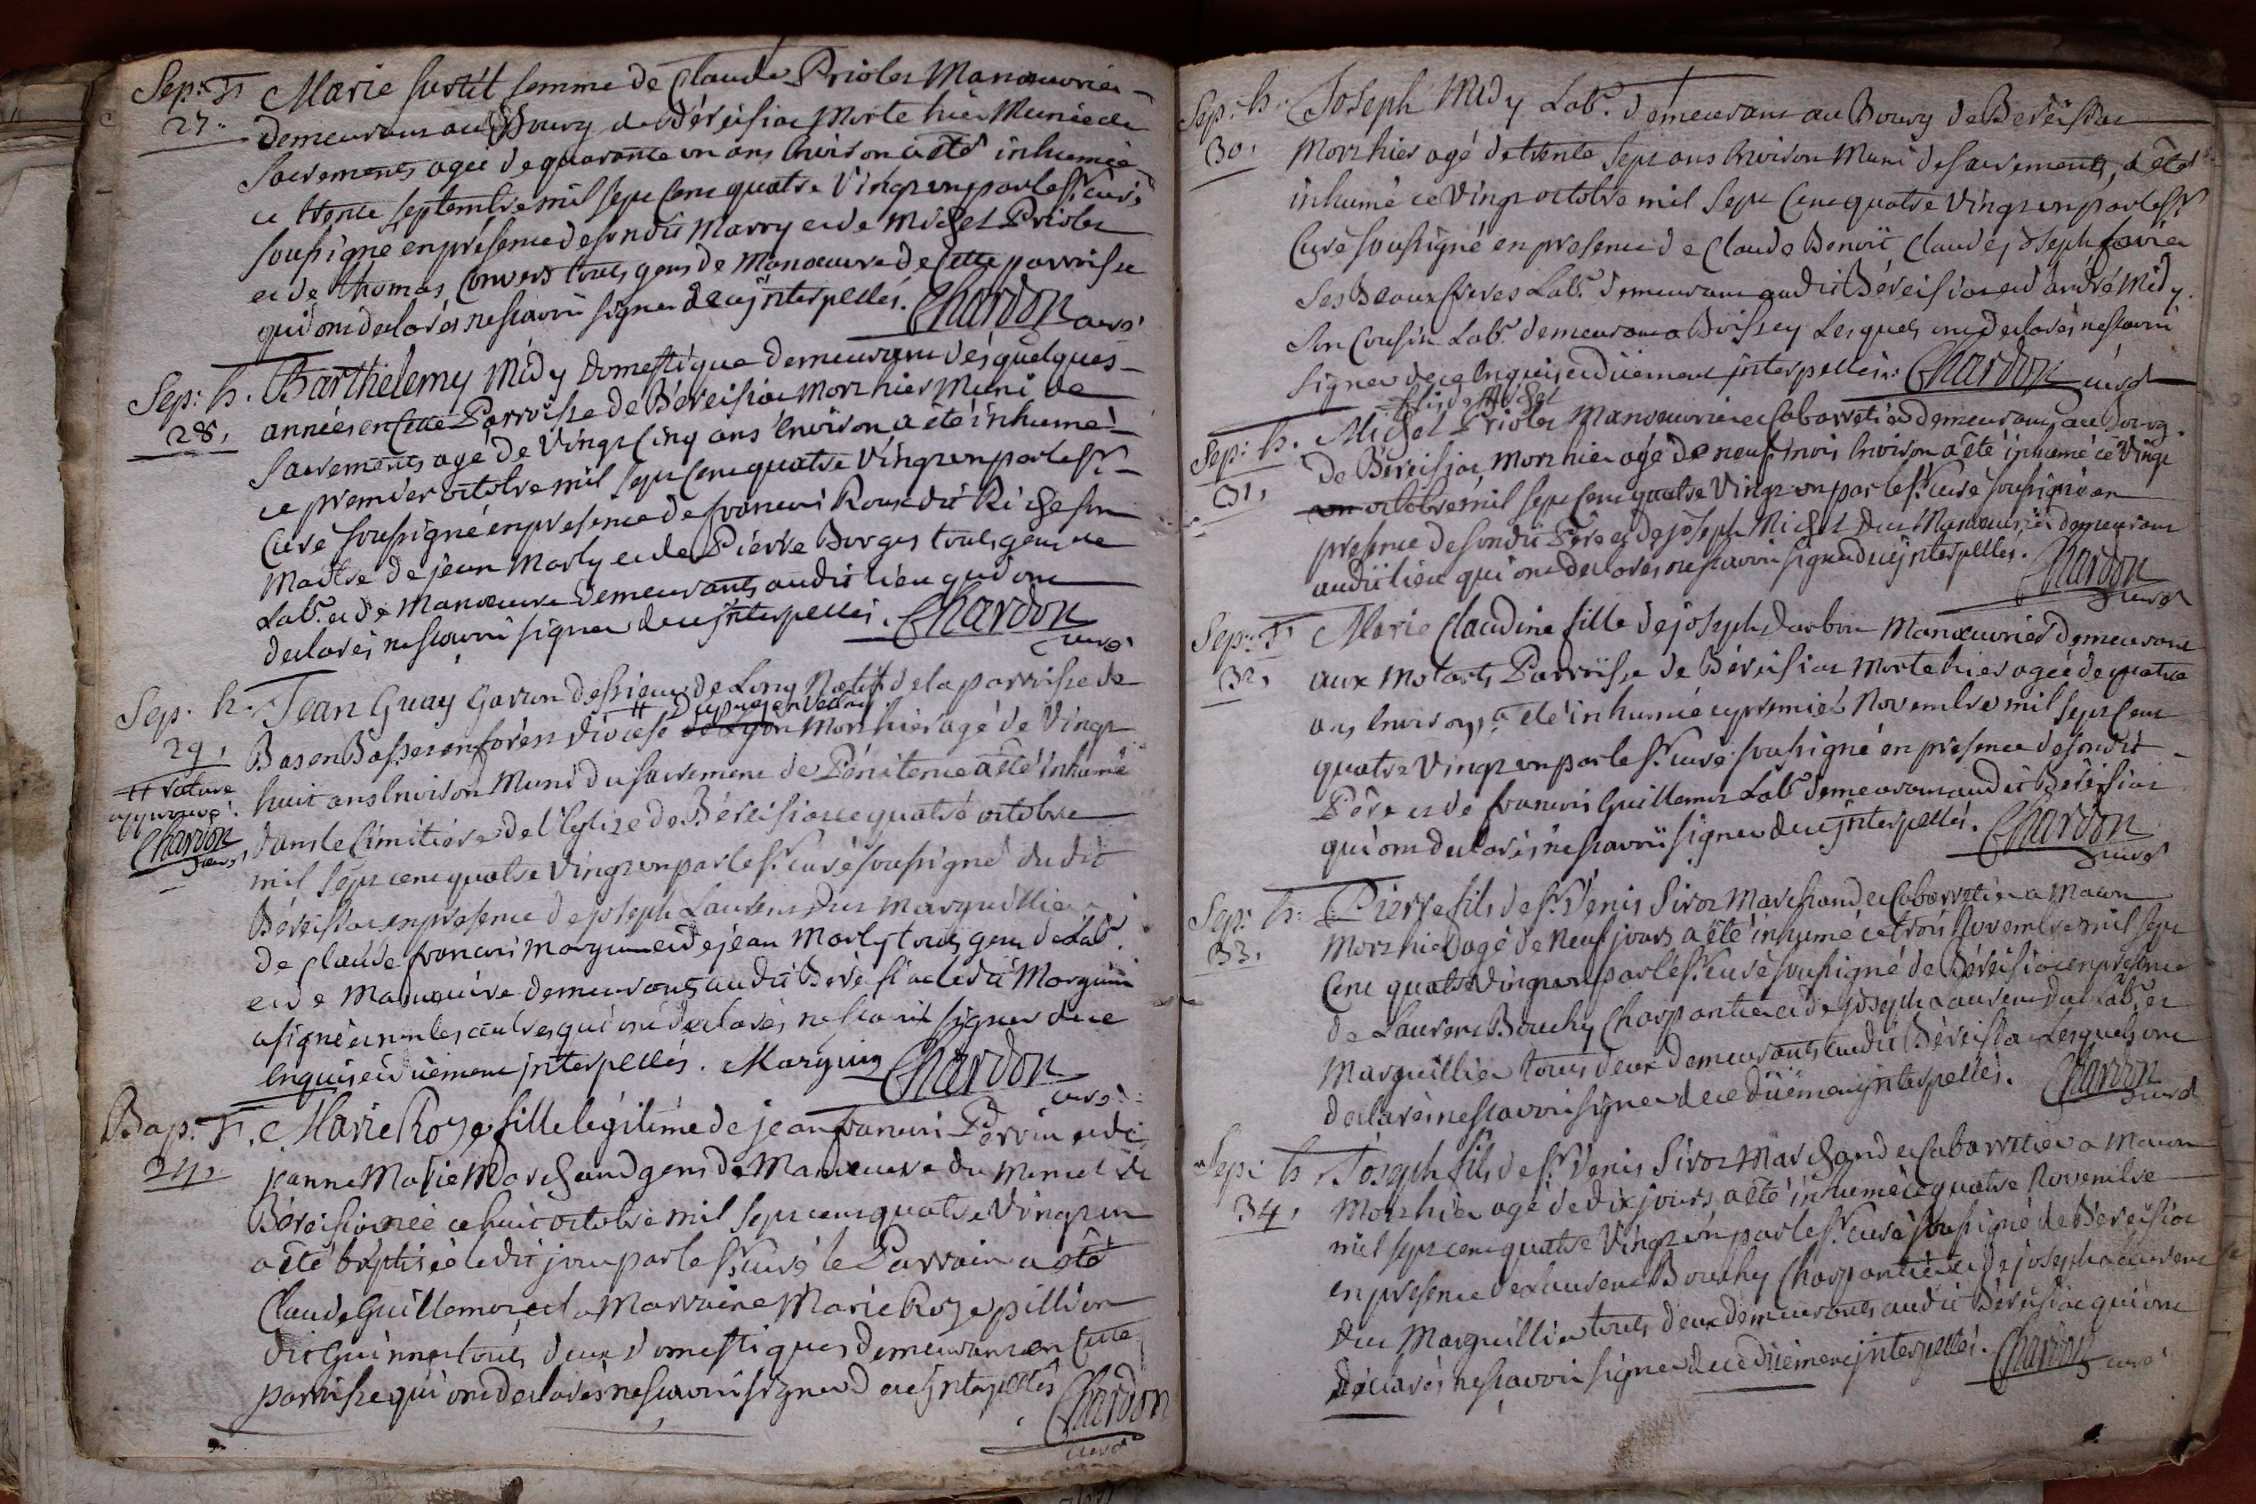 Sep: F.
27.
Marie furtil femme de Claude Priolet Manœuvrier
demeurant au Bourg de Béreisiat Morte hier Munie de
Sacrements agée de quarante un ans Environ a été inhumée
ce trente septembre mil sept cent quatre Vingt un par le Sr. curé
soussigné en présence de sondit Marry et de Michel Priolet
et de thomas Convers touts gens de Manœuvre de cette parroisse
qui ont declarés ne scavoir signer de ce jnterpellés. Chardon curé
Sep: h.
28.
Barthelemy Midy Domestique demeurant dès quelques
années en Cette Parroisse de Béreisiat Mort hier Muni de
Sacrements agé de Vingt Cinq ans Environ a été inhumé
ce premier octobre mil sept Cent quatre Vingt un par le Sr
Curé soussigné en presence de francois Roux dit Riche son
Maitre de jean Marly et de Pierre Borges touts gens de
Labr. et de Manœuvre demeurants audit lieu qui ont
declarés ne scavoir signer de ce jnterpellés. Chardon
curé
Sep. h.
29.
# rature
approuvé.
Chardon
curé
Jean Guay Garcon de Long Natif de la parroisse de
# Dupuy en Vellay
Bas en Basset en forest Diocese de Lyon Mort hier agé de Vingt
huit ans Environ Muni du sacrement de Pénitence a été inhumé
dans le Cimitière de l'Eglize de Béreisiat ce quatre octobre
mil sept cent quatre Vingt un par le Sr. Curé soussigné dudit
Béreisiat en presence de joseph Laurent Duc Marguillier
de Claude francois Marguin et de jean Marly touts gens de Labr.
et de Manœuvre demeurants audit Béreisiat ledit Marguin
a signé et non les autres qui ont declarés ne scavoir signer de ce
Enquis et duëment jnterpellés. Marguin Chardon
curé
Bap. F.
24.
Marie Roze fille légitime de jean francois Perrin et de
jeanne Marie Marchand gens de Manœuvre du de
Béreisiat née ce huit octobre mil sept cent quatre Vingt un
a été baptisée ledit jour par le Sr. Curé le Parrain a été
Claude Guillemot et la Marraine Marie Roze pillion
dit Guinnet touts deux domestiques demeurants en Cette
parroisse qui ont declarés ne scavoir signer de ce jnterpellés Chardon
curé
Sep: h.
30.
Joseph Midy Labr. demeurant au Bourg de Béreisiat
Mort hier agé de trente sept ans Environ Muni de sacrements, a été
inhumé ce Vingt octobre mil sept Cent quatre Vingt un par le Sr
Curé soussigné en presence de Claude Benoit, Claude joseph favier
ses Beaux freres Labr. demeurant audit Béreisiat et d'andré Midy
son Cousin Labr. demeurant a Boissey Lesquels ont declarés ne scavoir
signer de ce Enquis et duëment jnterpellés. Chardon curé
Sep: h.
31.
# fils de Michel
Michel Priolet Manœuvrier et Cabarretier demeurant au Bourg
de Béreisiat Mort hier agé de neuf mois Environ a été inhumé ce Vingt
un octobre mil sept Cent quatre Vingt un par le Sr. curé soussigné en
presence de sondit Père et de joseph Michel Duc Manœuvrier demeurant
audit lieu qui ont declarés ne scavoir signer de ce jnterpellés. Chardon
curé
Sep: F.
32.
Marie Claudine fille de joseph Darbon Manœuvrier demeurant
aux Parroisse de Béreisiat Morte hier agée de quatre
ans Environ, a été inhumée ce premier Novembre mil sept Cent
quatre Vingt un par le Sr. curé soussigné en presence de sondit
Père et de francois Guillemot Labr. demeurant audit Béreisiat
qui ont declarés ne scavoir signer de ce jnterpellés. Chardon
curé
Sep: h.
33.
Pierre fils de Sr. Denis Sirot Marchand et Cabarretier a Macon
Mort hier agé de Neuf jours a été inhumé ce trois Novembre mil sept
Cent quatre Vingt un par le Sr. curé soussigné de Béreisiat en presence
de Laurent Bouchy Charpantier et de joseph Laurent Duc Labr. et
Marguillier touts deux demeurants audit Béreisiat Lesquels ont
declarés ne scavoir signer de ce duëment jnterpellés. Chardon
curé
Sep: h.
34.
Joseph fils de Sr. Denis Sirot Marchand et Cabarretier a Macon
Mort hier agé de dix jours a été inhumé ce quatre Novembre
mil sept cent quatre Vingt un par le Sr. curé soussigné de Béreisiat
en presence de Laurent Bouchy Charpantier et de joseph Laurent
Duc Marguillier touts deux demeurants audit Béreisiat qui ont
declarés ne scavoir signer de ce duëment jnterpellés. Chardon curé